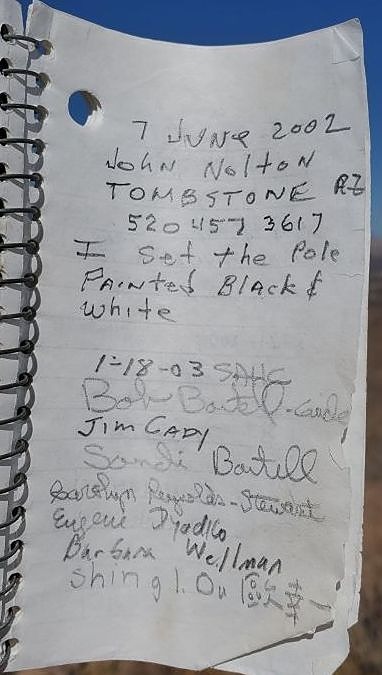 7 JUNe 2002
JOHN NOltON
TOMBSTONE AZ
520 457 3617
I Set the Pole
PAiNted BlAck &
white
1-18-03 SAHC
Bob Bartell - Guide
JIM CADY
Sandi Bartell
Carolyn Reynolds - Stewart
Eugene Dyadko
Barbara Wellman
Shing I. Ou